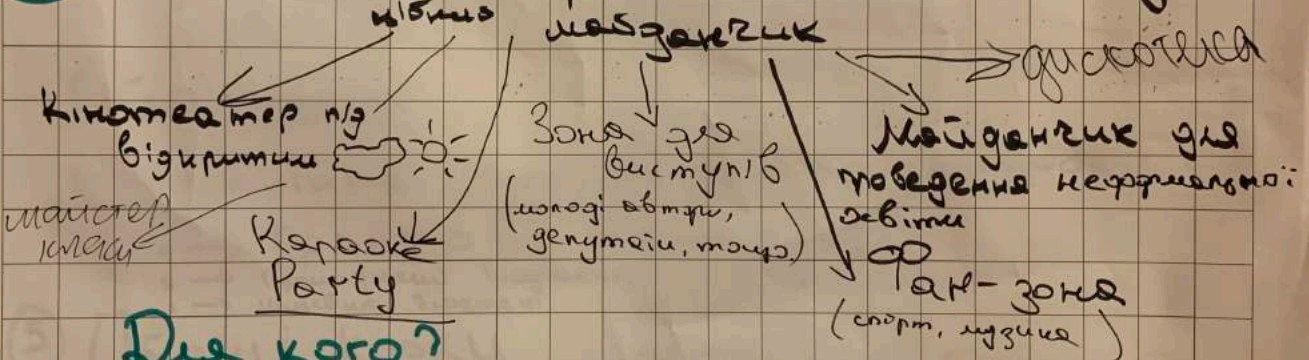 майданчик
дискотека
Кінотеатр п/д
відкритим
майстер
класи
Караоке
Party
Зона для
виступів
(молоді автори,
депутати, тощо)
Майданчик для
проведення неформальної
освіти
Фан-зона
(спорт, музика)
Для кого?